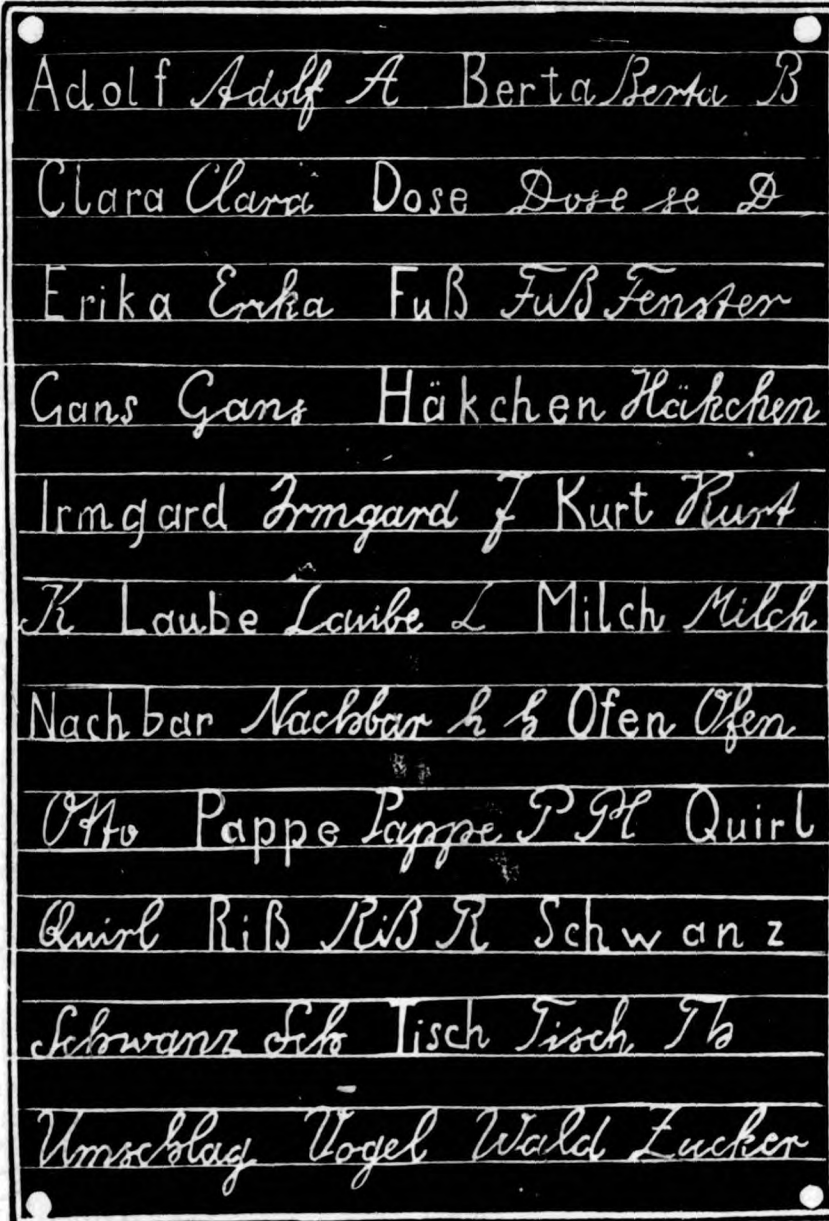 Adolf Adolf A Berta Berta B
Clara Clara Dose Dose se D
Erika Erika Fuß Fuß Fenster
Gans Gans Häkchen Häkchen
Irmgard Irmgard J Kurt Kurt
K Laube Laube L Milch Milch
Nachbar Nachbar h h Ofen Ofen
Otto Pappe Pappe P Pf Quirl
Quirl Riß Riß R Schwanz
Schwanz Sch Tisch Tisch Th
Umschlag Vogel Wald Zucker